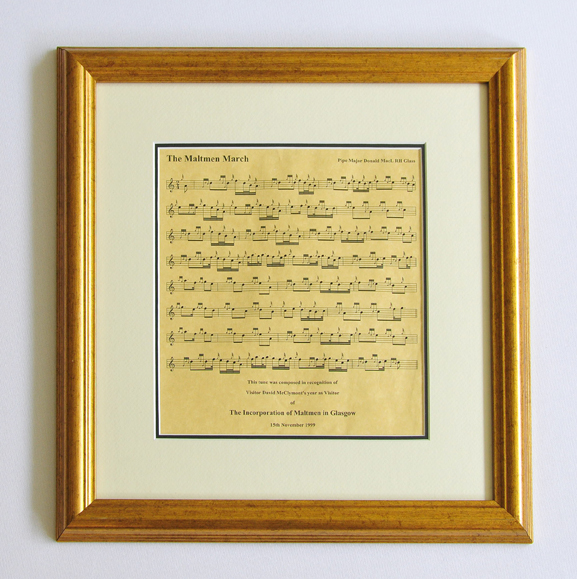 The Maltmen March
Pipe Major Donald MacL BH Glass
This tune was composed in recognition of
Visitor David McClyment's year as Visitor
of
The Incorporation of Maltmen in Glasgow
15th November 1999